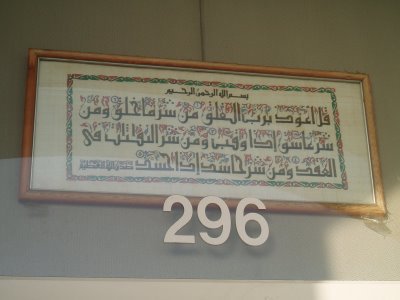 بسم الله الرحمن الرحيم
قل أعوذ برب الفلق من شر ما خلق ومن
شر غاسق إذا وقب ومن شر النفاثات في
العقد ومن شر حاسد إذا حسد
296